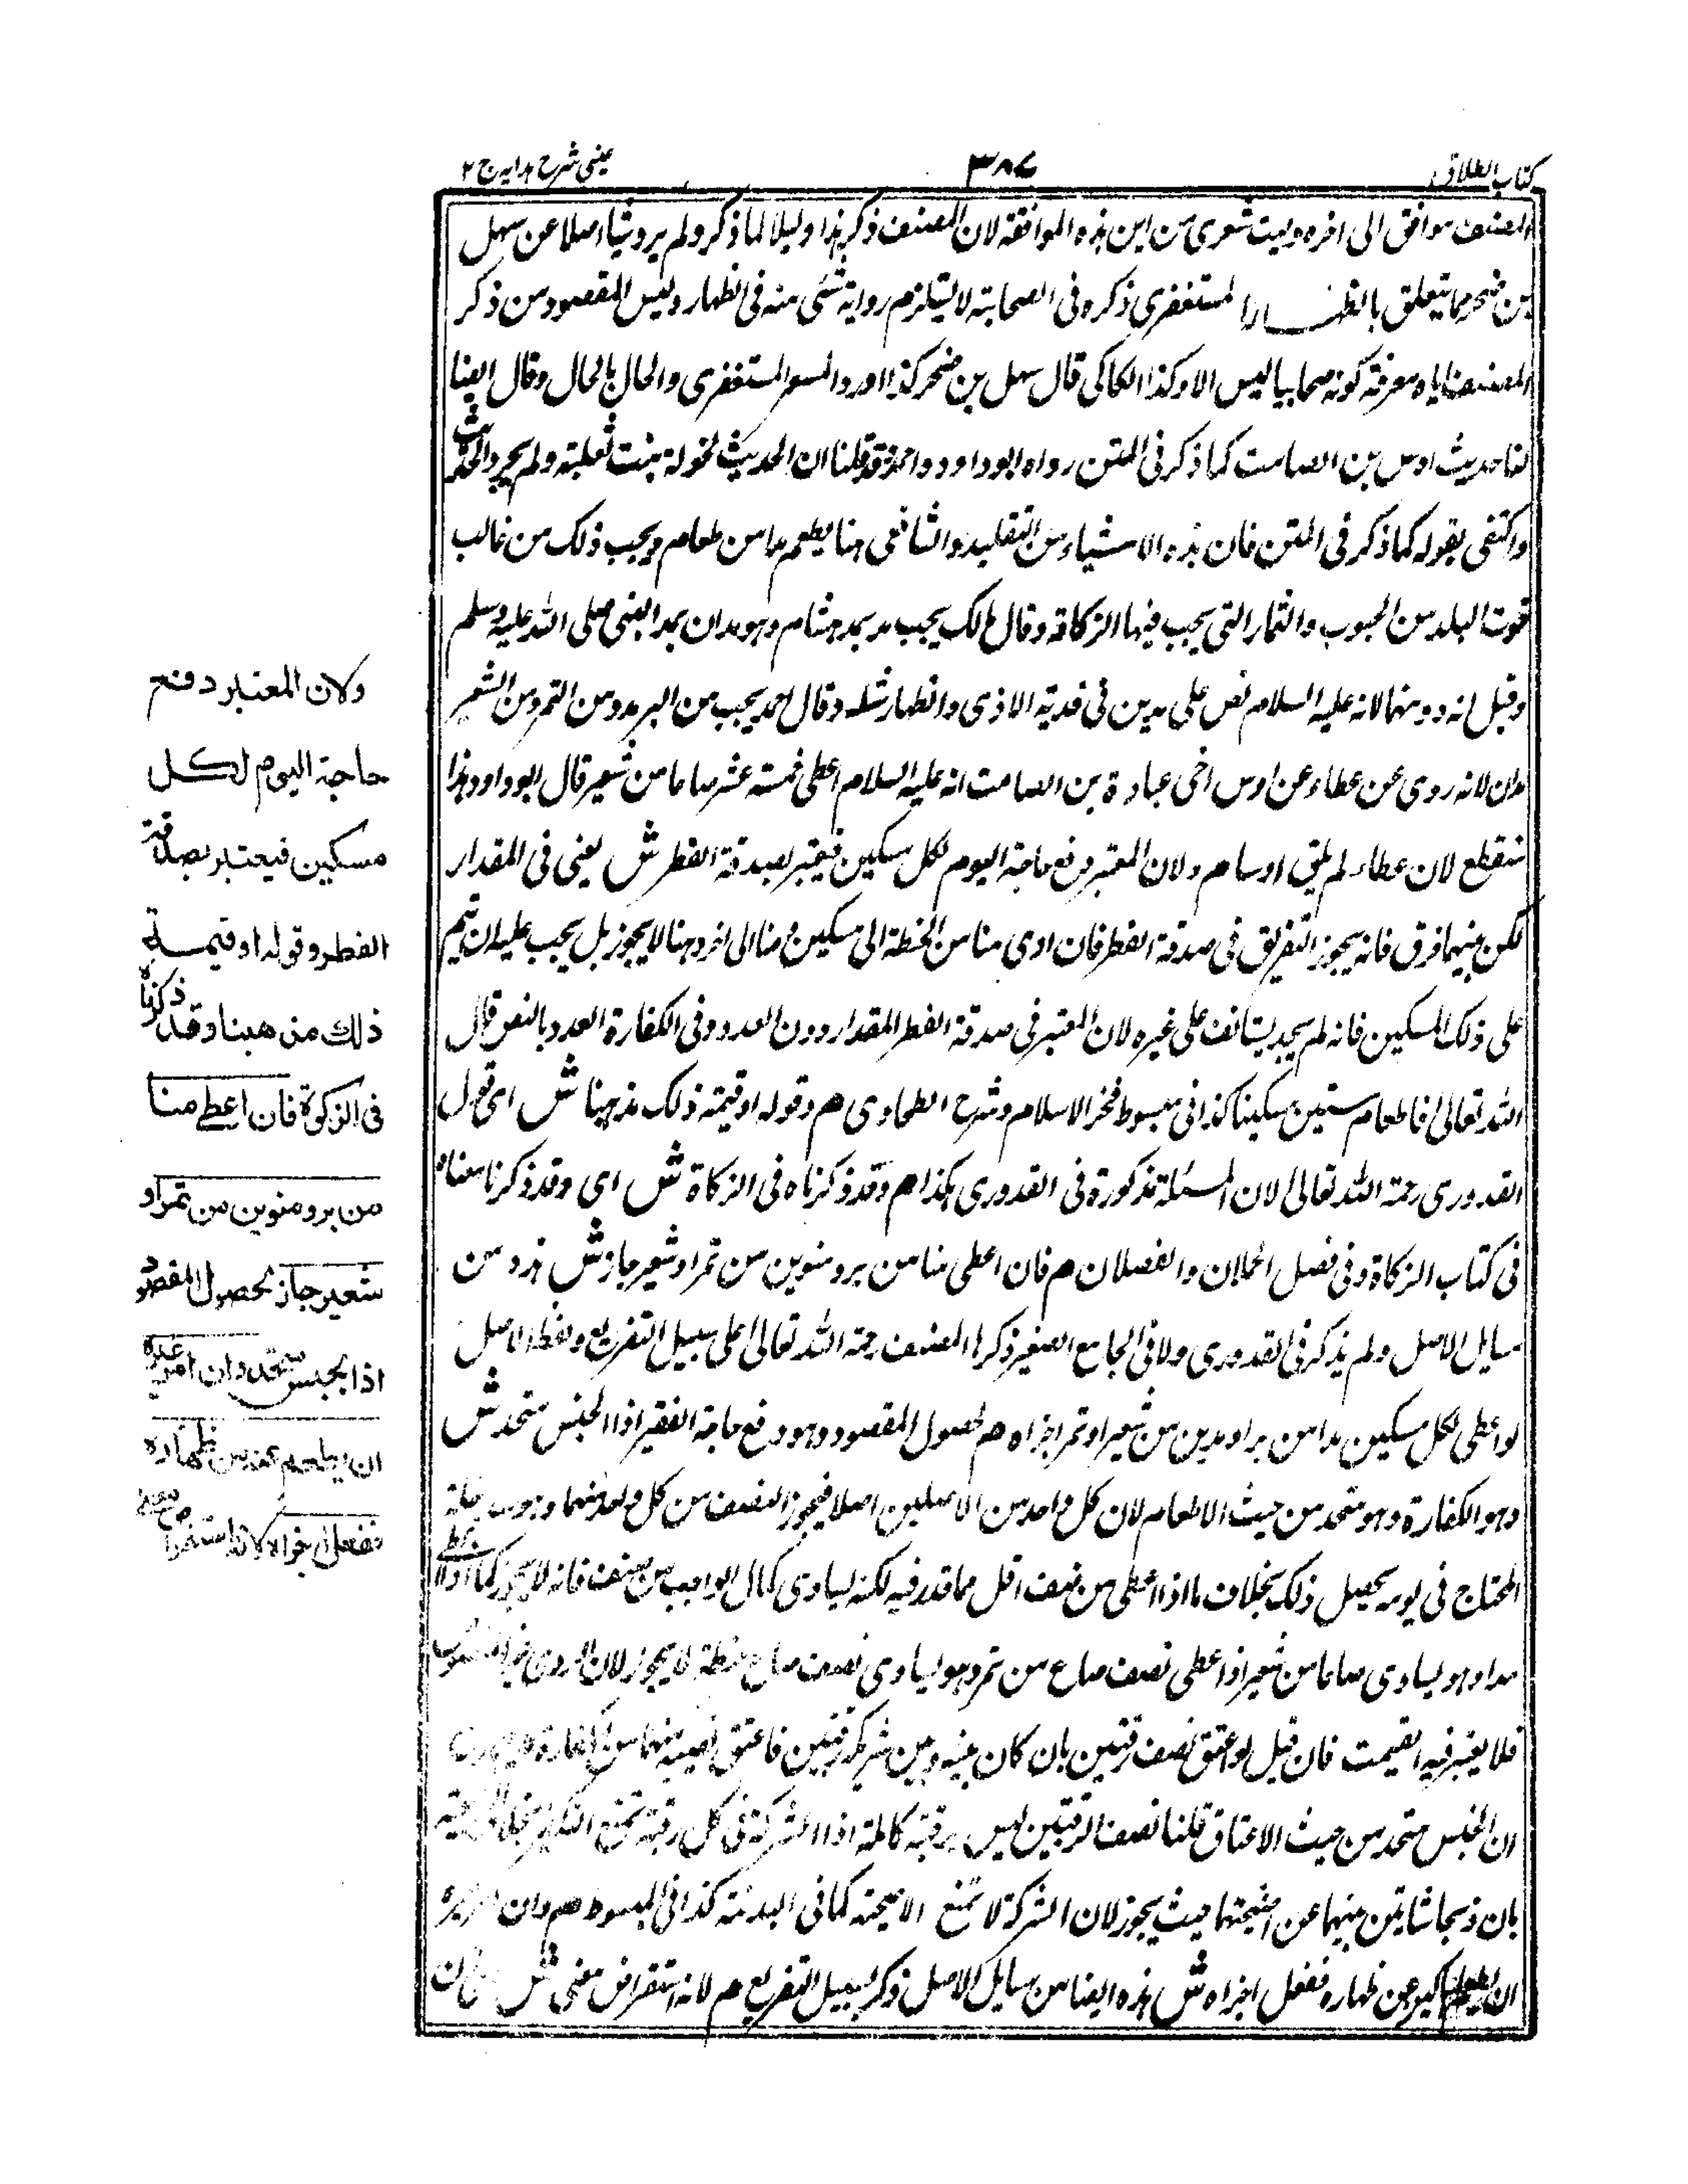 كتاب الطلاق
٣٨٧
عينى شرح هدايه ج ٢
المصنف موافق الى اخره وليت شعرى من اين هذه الموافقة لان المصنف ذكر هذا دليلا لما ذكر ولم يرو شيأ اصلا عن سهل
بن صخر مما يتعلق بالظهار المستغفرى ذكره فى الصحابة لا يستلزم رواية شئى منه فى الظهار وليس المقصود من ذكر
المصنف اياه معرفة كونه صحابيا ليس الا وكذا الكاكى قال سهل بن صخر كذا اورد المستغفرى والحال بالحال وقال ايضا
لنا حديث اوس بن الصامت كما ذكر فى المتن رواه ابو داود واحمد وقد قلنا ان الحديث لخولة بنت ثعلبة ولم يجر والحديث
واكتفى بقوله كما ذكر فى المتن فان هذه الاشياء من التقليد والشافعى هنا يطعم مدا من طعام ويجب ذلك من غالب
قوت البلد من الحبوب والثمار التى يجب فيها الزكاة وقال مالك يجب مد بمد هشام وهو مدان بمد النبى صلى الله عليه وسلم
وقيل انه دونهما لانه عليه السلام نص على مدين فى فدية الاذى والظهار مثله وقال احمد يجب من البر مد ومن التمر ومن الشعير
مدان لانه روى عن عطاء عن اوس اخى عبادة بن الصامت انه عليه السلام اعطى خمسة عشر صاعا من شعير قال ابو داود هذا
منقطع لان عطاء لم يلق اوسا م ولان المعتبر دفع حاجة اليوم لكل مسكين فيعتبر بصدقة الفطر ش يعنى فى المقدار
لكن بينهما فرق فانه يجوز التفريق فى صدقة الفطر فان ادى منا من الحنطة الى مسكين ومنا الى اخر وهنا لا يجوز بل يجب عليه ان يتم
على ذلك المسكين فانه لم يجد يستانف على غيره لان المعتبر فى صدقة الفطر المقدار دون العدد وفى الكفارة العدد بالنص قال
الله تعالى فاطعام ستين مسكينا كذا فى مبسوط فخر الاسلام وشرح الطحاوى م وقوله او قيمة ذلك مذهبنا ش اى قول
القدورى رحمة الله تعالى لان المسئلة مذكورة فى القدورى هكذا م وقد ذكرناه فى الزكاة ش اى وقد ذكرنا معناه
فى كتاب الزكاة وفى فصل الحملان والفصلان م فان اعطى منا من بر ومنوين من تمر او شعير جاز ش هذه من
مسايل الاصل ولم يذكر فى القدورى ولا فى الجامع الصغير ذكرها المصنف رحمة الله تعالى على سبيل التفريع ولفظ الاصل
لو اعطى لكل مسكين مدا من بر او مدين من شعير او تمر اجزاه م لحصول المقصود وهو دفع حاجة الفقير اذا الجنس متحد ش
وهو الكفارة وهو متحد من حيث الاطعام لان كل واحد من الاصلين اصلا فيجوز النصف من كل واحد منهما
المحتاج فى يومه يحصل ذلك بخلاف ما اذا اعطى من صنف اقل مما قدر فيه لكنه يساوى كمال الواجب من صنف فانه لا يجوز كما اذا اعطى
مدا وهو يساوى صاعا من شعير او اعطى نصف صاع من تمر وهو يساوى نصف صاع حنطة لا يجوز لان
فلا يعتبر فيه القيمت فان قيل لو اعتق نصف رقبتين بان كان بينه وبين شريكه رقبتين فاعتق نصيبه منهما من الكفارة
ان الجنس متحد من حيث الاعتاق قلنا نصف الرقبتين ليس برقبة كاملة اذا الشركة فى كل رقبة تمنع
بان ذبحا شاتين بينهما عن اضحيتها حيث يجوز لان الشركة لا تمنع الاضحية كما فى البدنة كذا فى المبسوط م وان امر غيره
ان يطعم عن ظهاره ففعل اجزاه ش هذه ايضا من مسايل الاصل ذكر لسبيل التفريع م لانه استقراض معنى ش
ولان المعتبر دفع
حاجة اليوم لكل
مسكين فيعتبر بصدقة
الفطر وقوله او قيمة
ذلك مذهبنا وقد ذكرناه
فى الزكوة فان اعطى منا
من بر ومنوين من تمر او
شعير جاز لحصول المقصود
اذا الجنس متحد وان امر غيره
ان يطعم عنه من ظهاره
ففعل اجزاه لانه استقراض معنى